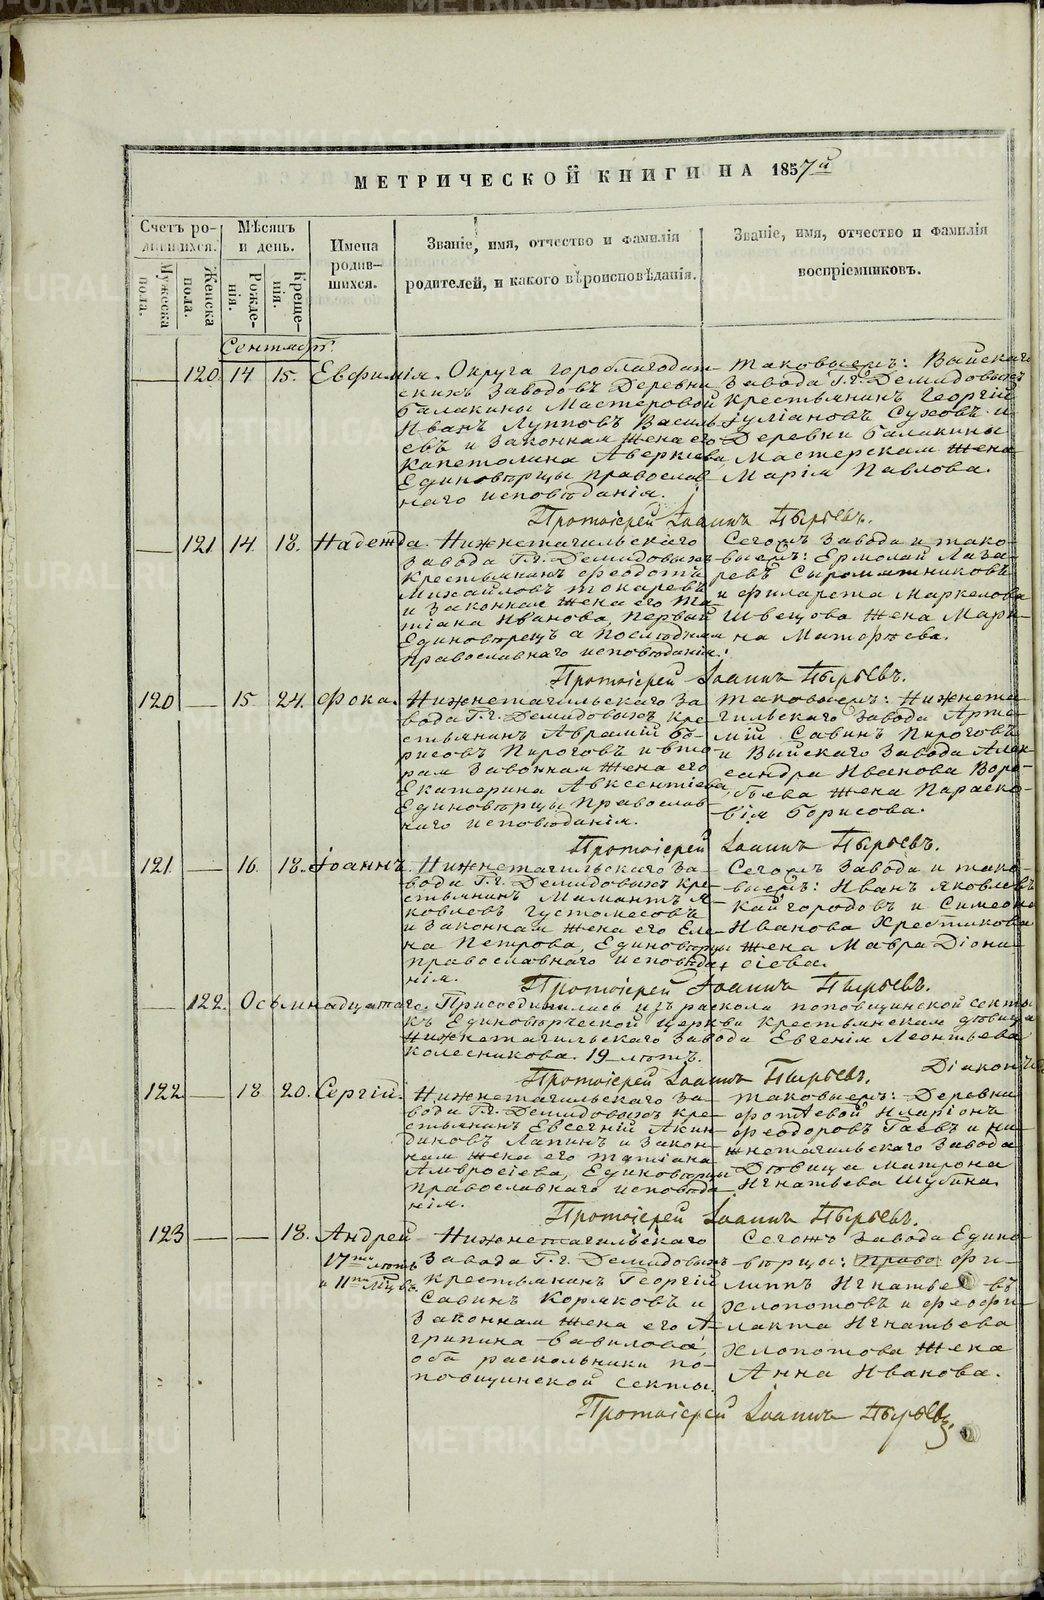 МЕТРИЧЕСКОЙ КНИГИ НА 1857й
Счетъ ро-
дившихся.
Мужеска
пола.
Женска
пола.
Мѣсяцъ
и день.
Рожде-
нія.
Креще-
нія.
Имена
родив-
шихся.
Званіе, имя, отчество и фамилія
родителей, и какого вѣроисповѣданія.
Званіе, имя, отчество и фамилія
воспріемниковъ.
Сентябрь
120 14 15. Евфимія.
Округа гороблагодат-
скихъ заводовъ Деревни
Балакины Мастеровой
Иванъ Лупповъ Василь-
евъ и законная жена его
Капетолина Аверкіева,
Единовѣрцы православ-
наго исповѣданія.
таковыемъ: Выйскаго
завода Г.г. Демидовыхъ
крестьянинъ Георгій
Іуліановъ Суховъ и
Деревни Балакины
Мастерская жена
Марія Павлова.
Протоіерей Іоаннъ Пырьевъ.
121 14. 18. Надежда.
Нижнетагильскаго
завода Г.г. Демидовыхъ
крестьянинъ Феодотъ
Михайловъ Токаревъ
и законная жена его Та-
тіана Иванова, первый
Единовѣрецъ а последняя
православнаго исповѣданія.
Сегожъ завода и тако-
выемъ: Ермолай Лаза-
ревъ Сыромятниковъ
и Филарета Маркелова
Швецова жена Мари-
на Матѳѣева.
Протоіерей Іоаннъ Пырьевъ.
120 15 24. Фока.
Нижнетагильскаго за-
вода Г.г. Демидовыхъ кре-
стьянинъ Аврамій Бо-
рисовъ Пироговъ и вто-
рая законная жена его
Екатерина Авксентіева,
Единовѣрцы православ-
наго исповѣданія.
таковыемъ: Нижнета-
гильскаго завода Арте-
мій Савинъ Пироговъ
и Выйскаго завода Алек-
сандра Иванова Воро-
бьева жена Параско-
вія Борисова.
Протоіерей Іоаннъ Пырьевъ.
121 16. 18. Іоаннъ.
Нижнетагильскаго за-
вода Г.г. Демидовыхъ кре-
стьянинъ Мамантъ Я-
ковлевъ Густомесовъ
и законная жена его Еле-
на Петрова, Единовѣрцы
православнаго исповѣда-
нія.
Сегожъ завода и тако-
выемъ: Иванъ Яковлевъ
Кайгородовъ и Симеона
Иванова Хрестикова
жена Мавра Діони-
сіева.
Протоіерей Іоаннъ Пырьевъ.
122. Осьмнадцатаго. Присоединилась изъ раскола поповщинской секты
къ Единоверческой церкви крестьянская дѣвица
Нижнетагильскаго завода Евгенія Леонтьева
Колесникова. 19 лѣтъ.
Протоіерей Іоаннъ Пырьевъ. Діаконъ
122 18 20. Сергій.
Нижнетагильскаго за-
вода Г.г. Демидовыхъ кре-
стьянинъ Евсегній Акин-
диновъ Лапинъ и закон-
ная жена его Татіана
Амвросіева, Единовѣрцы
православнаго исповѣда-
нія.
таковыемъ: Деревни
Фотѣевой Иларіонъ
Феодоровъ Гаевъ и Ни-
жнетагильскаго завода
Дѣвица Матрона
Игнатьева Шубина.
Протоіерей Іоаннъ Пырьевъ.
123 18. Андрей
17ти лѣтъ
и 11ти мѣс.
Нижнетагильскаго
завода Г.г. Демидовыхъ
крестьянинъ Георгій
Савинъ Коряковъ и
законная жена его А-
грипина Вавилова,
оба раскольники по-
повщинской секты.
Сегожъ завода Едино-
вѣрцы: Право Фи-
липпъ Игнатье въ
Хлопотовъ и Феофи-
лакта Игнатьева
Хлопотова жена
Анна Иванова.
Протоіерей Іоаннъ Пырьевъ.
METRIKI.GASO-URAL.RU